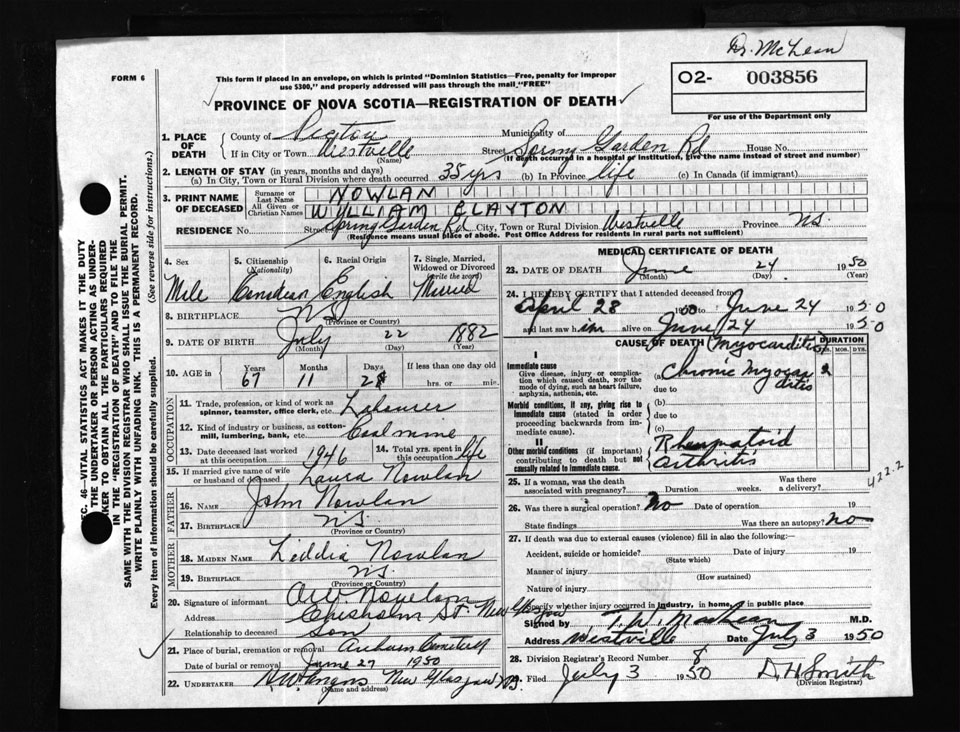 Dr. McLean
FORM 6
This form if placed in an envelope, on which is printed "Dominion Statistics—Free, penalty for improper
use $300," and properly addressed will pass through the mail "FREE"
O2- 003856
For use of the Department only
PROVINCE OF NOVA SCOTIA—REGISTRATION OF DEATH
1. PLACE OF DEATH County of Pictou Municipality of
If in City or Town Westville (Name) Street Spring Garden Rd House No.
(If death occurred in a hospital or institution, give the name instead of street and number)
2. LENGTH OF STAY (in years, months and days)
(a) In City, Town or Rural Division where death occurred 35 yrs (b) In Province life (c) In Canada (if immigrant)
3. PRINT NAME OF DECEASED Surname or Last Name NOWLAN
All Given or Christian Names WILLIAM CLAYTON
RESIDENCE No. Street Spring Garden Rd City, Town or Rural Division Westville Province NS.
(Residence means usual place of abode. Post Office Address for residents in rural parts not sufficient)
4. Sex 5. Citizenship (Nationality) 6. Racial Origin 7. Single, Married, Widowed or Divorced (write the word)
Male Canadian English Married
8. BIRTHPLACE N.S.
(Province or Country)
9. DATE OF BIRTH July 22 1882
(Month) (Day) (Year)
10. AGE in Years Months Days If less than one day old
67 11 28 hrs. or min.
OCCUPATION
11. Trade, profession, or kind of work as spinner, teamster, office clerk, etc. Labourer
12. Kind of industry or business, as cotton-mill, lumbering, bank, etc. Coal mine
13. Date deceased last worked at this occupation 1946 14. Total yrs. spent in this occupation life
15. If married give name of wife or husband of deceased Laura Nowlan
FATHER
16. NAME John Nowlan
17. BIRTHPLACE N.S.
(Province or Country)
MOTHER
18. MAIDEN NAME Liddia Nowlan
19. BIRTHPLACE N.S.
(Province or Country)
20. Signature of informant
Address Chisholm St. New Glasgow
Relationship to deceased Son
21. Place of burial, cremation or removal Auburn Cemetery
Date of burial or removal June 27 1950
22. UNDERTAKER New Glasgow N.S.
(Name and address)
MEDICAL CERTIFICATE OF DEATH
23. DATE OF DEATH June 24 1950
(Month) (Day) (Year)
24. I HEREBY CERTIFY that I attended deceased from
April 28 1950 to June 24 1950
and last saw him alive on June 24 1950
CAUSE OF DEATH (Myocarditis) DURATION
YRS. MOS. DYS.
I
Immediate cause
Give disease, injury or complication which caused death, NOT the mode of dying, such as heart failure, asphyxia, asthenia, etc.
(a) Chronic Myocarditis 2
due to
Morbid conditions, if any, giving rise to immediate cause (stated in order proceeding backwards from immediate cause).
(b)
due to
(c)
II
Other morbid conditions (if important) contributing to death but not causally related to immediate cause.
Rheumatoid
Arthritis
422.2
25. If a woman, was the death associated with pregnancy? Duration weeks. Was there a delivery?
26. Was there a surgical operation? No Date of operation 19
State findings Was there an autopsy? No
27. If death was due to external causes (violence) fill in also the following:—
Accident, suicide or homicide? Date of injury 19
(State which)
Manner of injury
(How sustained)
Nature of injury
Specify whether injury occurred in industry, in home, in public place
Signed by T.W. MacLean M.D.
Address Westville Date July 3 1950
28. Division Registrar's Record Number
29. Filed July 3 1950 D. H. Smith
(Division Registrar)
SEC. 46—VITAL STATISTICS ACT MAKES IT THE DUTY
OF THE UNDERTAKER OR PERSON ACTING AS UNDER-
TAKER TO OBTAIN ALL THE PARTICULARS REQUIRED
IN THE "REGISTRATION OF DEATH" AND TO FILE THE
SAME WITH THE DIVISION REGISTRAR WHO SHALL ISSUE THE BURIAL PERMIT.
WRITE PLAINLY WITH UNFADING INK. THIS IS A PERMANENT RECORD.
Every item of information should be carefully supplied. (See reverse side for instructions.)